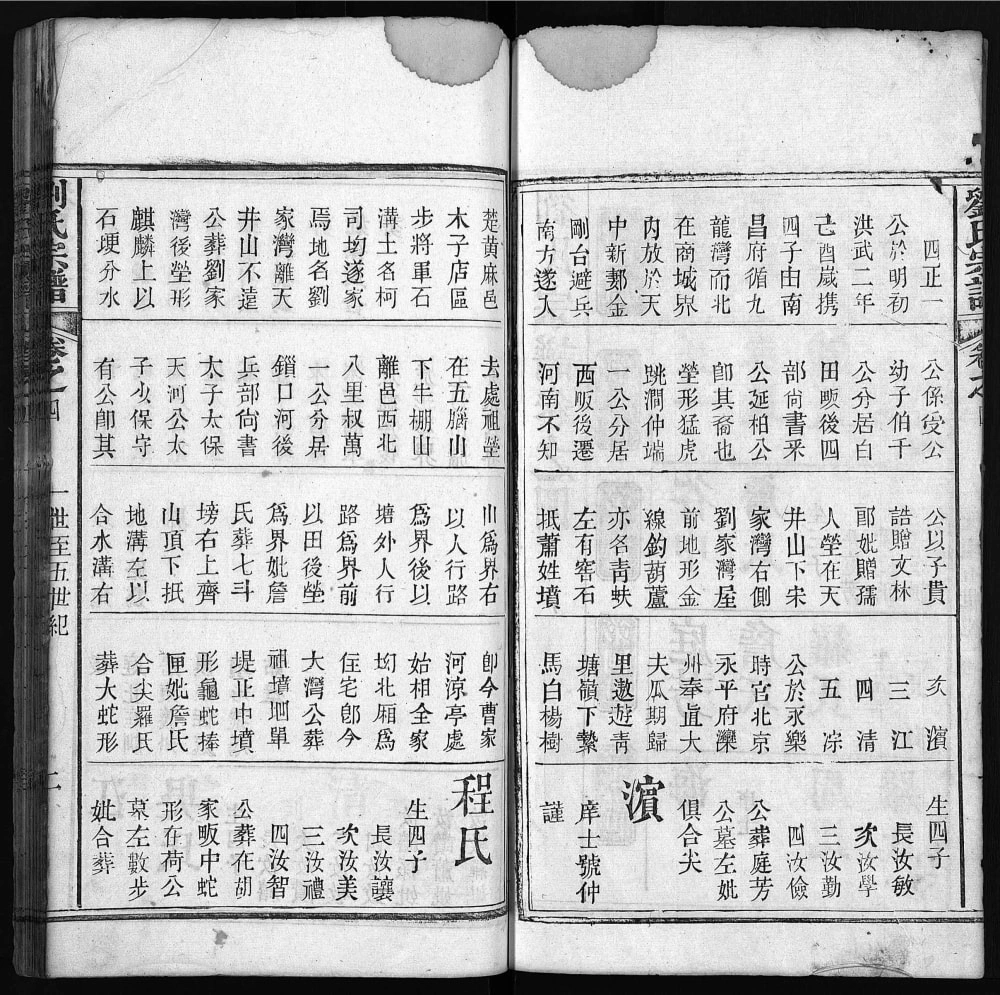 劉氏宗譜
四正一
公於明初
洪武二年
己酉歲携
四子由南
昌府循九
龍灣而北
在商城界
内放於天
中新鄴金
剛台避兵
南方遂入
公係受公
幼子伯千
公分居白
田畈後四
部尙書釆
公延柏公
卽其裔也
塋形猛虎
跳澗仲端
一公分居
西畈後遷
河南不知
公以子貴
誥贈文林
郎妣贈孺
人塋在天
井山下宋
家灣右側
劉家灣屋
前地形金
線釣葫蘆
亦名靑蚨
左有窖石
抵蕭姓墳
次濵
三江
四清
五淙
公於永樂
時官北京
永平府灤
州奉直大
夫瓜期歸
里遨遊靑
塘嶺下
馬白楊樹
生四子
長汝敏
次汝學
三汝勤
四汝儉
公葬庭芳
公墓左妣
俱合尖
濵
庠士號仲
謹
楚黃麻邑
木子店區
步將軍石
溝土名柯
司均遂家
焉地名劉
家灣離天
井山不遠
公葬劉家
灣後塋形
麒麟上以
石埂分水
去處祖塋
在五腦山
下牛棚山
離邑西北
八里叔萬
一公分居
鎖口河後
兵部尙書
太子太保
天河公太
子少保守
有公卽其
山爲界右
以人行路
爲界後以
塘外人行
路爲界前
以田後塋
爲界妣詹
氏葬七斗
塝右上齊
山頂下抵
地溝左以
合水溝右
卽今曹家
河涼亭處
始相全家
坳北厢爲
住宅卽今
大灣公葬
祖墳堋單
堤正中墳
形龜蛇捧
匣妣詹氏
合尖羅氏
葬大蛇形
程氏
生四子
長汝讓
次汝美
三汝禮
四汝智
公葬在胡
家畈中蛇
形在荷公
墓左數步
妣合葬
劉氏宗譜
卷之四
一世至五世紀